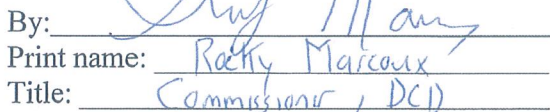 By:
Print name: Rocky Marcoux
Title: Commissioner, DCD